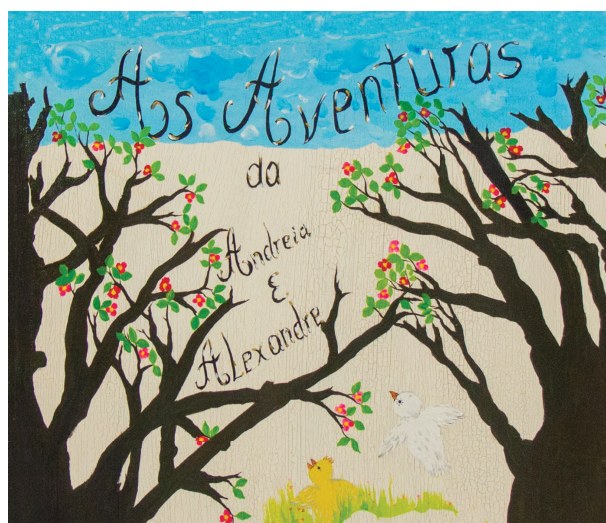 As Aventuras
da
Andreia
E
ALexandre